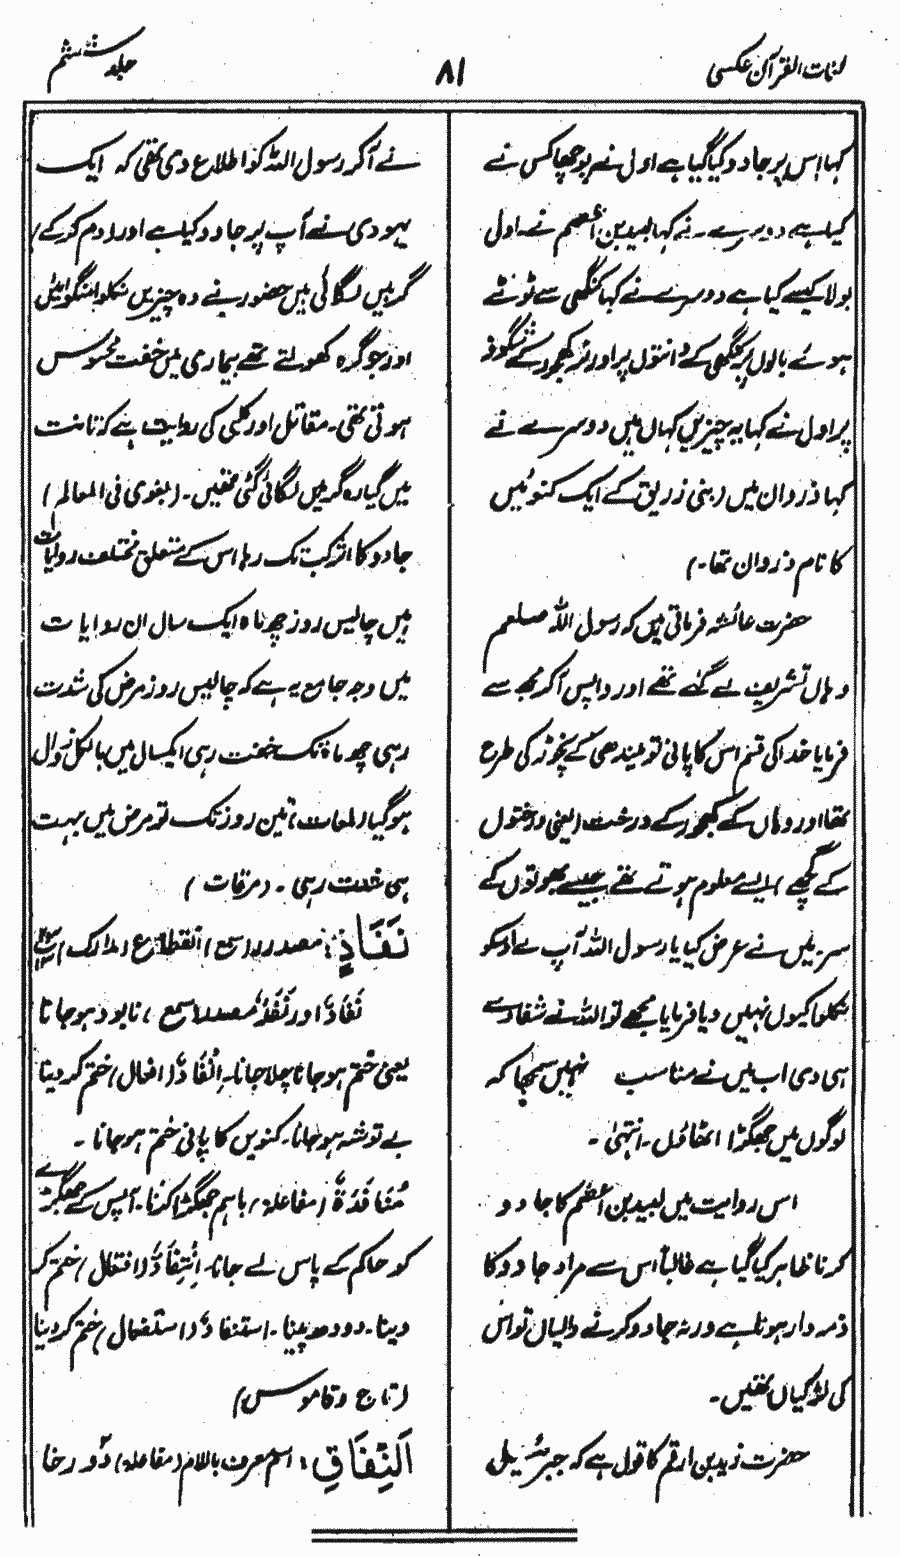 لغات القرآن عکسی
۸۱
جلد ششم
کہا اس پر جادو کیا گیا ہے اول نے پوچھا کس نے
کیا ہے دوسرے نے کہا لبید بن اعصم نے اول
بولا کیسے کیا ہے دوسرے نے کہا کنگھی سے ٹوٹے
ہوئے بالوں پر کنگھی کے دانتوں پر اور نر کھجور کے شگوفہ
پر اول نے کہا یہ چیزیں کہاں ہیں دوسرے نے
کہا ذروان میں (بنی زریق کے ایک کنوئیں
کا نام ذروان تھا۔)
حضرت عائشہ فرماتی ہیں کہ رسول اللہ صلعم
وہاں تشریف لے گئے تھے اور واپس آکر مجھ سے
فرمایا خدا کی قسم اس کا پانی تو مہندی کے نچوڑ کی طرح
تھا اور وہاں کے کھجور کے درخت (یعنی درختوں
کے گچھے) ایسے معلوم ہوتے تھے جیسے بھوتوں کے
سر۔ میں نے عرض کیا یا رسول اللہ آپ نے اس کو
نکلوا کیوں نہیں دیا فرمایا مجھے تو اللہ نے شفا دے
ہی دی اب میں نے مناسب نہیں سمجھا کہ
لوگوں میں جھگڑا اٹھاؤں۔ انتہیٰ۔
اس روایت میں لبید بن اعصم کا جادو
کرنا ظاہر کیا گیا ہے غالباً اس سے مراد جادو کا
ذمہ دار ہونا ہے ورنہ جادو کرنے والیاں تو اس
کی لڑکیاں تھیں۔
حضرت زید بن ارقم کا قول ہے کہ جبرئیل
نے آکر رسول اللہ کو اطلاع دی تھی کہ ایک
یہودی نے آپ پر جادو کیا ہے اور دم کر کے
گرہیں لگائی ہیں حضور نے وہ چیزیں نکلوا منگوائیں
اور جو گرہ کھولتے تھے بیماری میں خفت محسوس
ہوتی تھی۔ مقاتل اور کلبی کی روایت ہے کہ تانت
میں گیارہ گرہیں لگائی گئی تھیں۔ (بغوی فی المعالم)
جادو کا اثر کب تک رہا اس کے متعلق مختلف روایات
ہیں چالیس روز چھ ماہ ایک سال ان روایات
میں وجہ جامع یہ ہے کہ چالیس روز مرض کی شدت
رہی چھ ماہ تک خفت رہی ایک سال میں بالکل زوال
ہو گیا (لمعات) تین روز تک تو مرض میں بہت
ہی شدت رہی۔ (مرقات)
نَفَادٍ: مصدر (سمع) انقطاع (مدارک)
نَفَادٌ اور نَفَدٌ مصدر (سمع)، نابود ہو جانا
یعنی ختم ہو جانا چلا جانا۔ اِنْفَادٌ (افعال) ختم کر دینا
بے توشہ ہو جانا۔ کنویں کا پانی ختم ہو جانا۔
مُنَافَدَةٌ (مفاعلۃ) باہم جھگڑا کرنا۔ آپس کے جھگڑے
کو حاکم کے پاس لے جانا۔ اِنْتِفَادٌ (افتعال) ختم کر
دینا۔ دودھ پینا۔ استنفاد (استفعال) ختم کر دینا
(تاج و قاموس)
اَلنِّفَاقِ: اسم معرف باللام (مفاعلہ) دو رخا